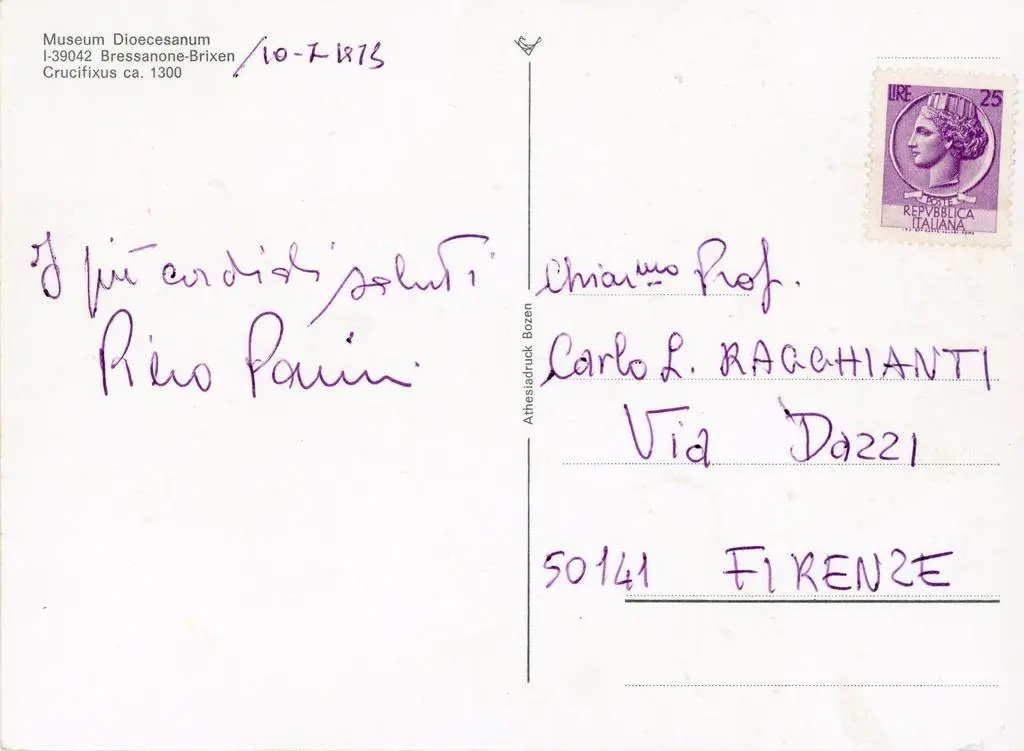 Museum Dioecesanum
I-39042 Bressanone-Brixen
Crucifixus ca. 1300
/10-7-1973
I più cordiali saluti
Piero Panini
Athesiadruck Bozen
LIRE 25
POSTE
REPVBBLICA
ITALIANA
Chiar.mo Prof.
Carlo L. RAGGHIANTI
Via Dazzi
50141 FIRENZE